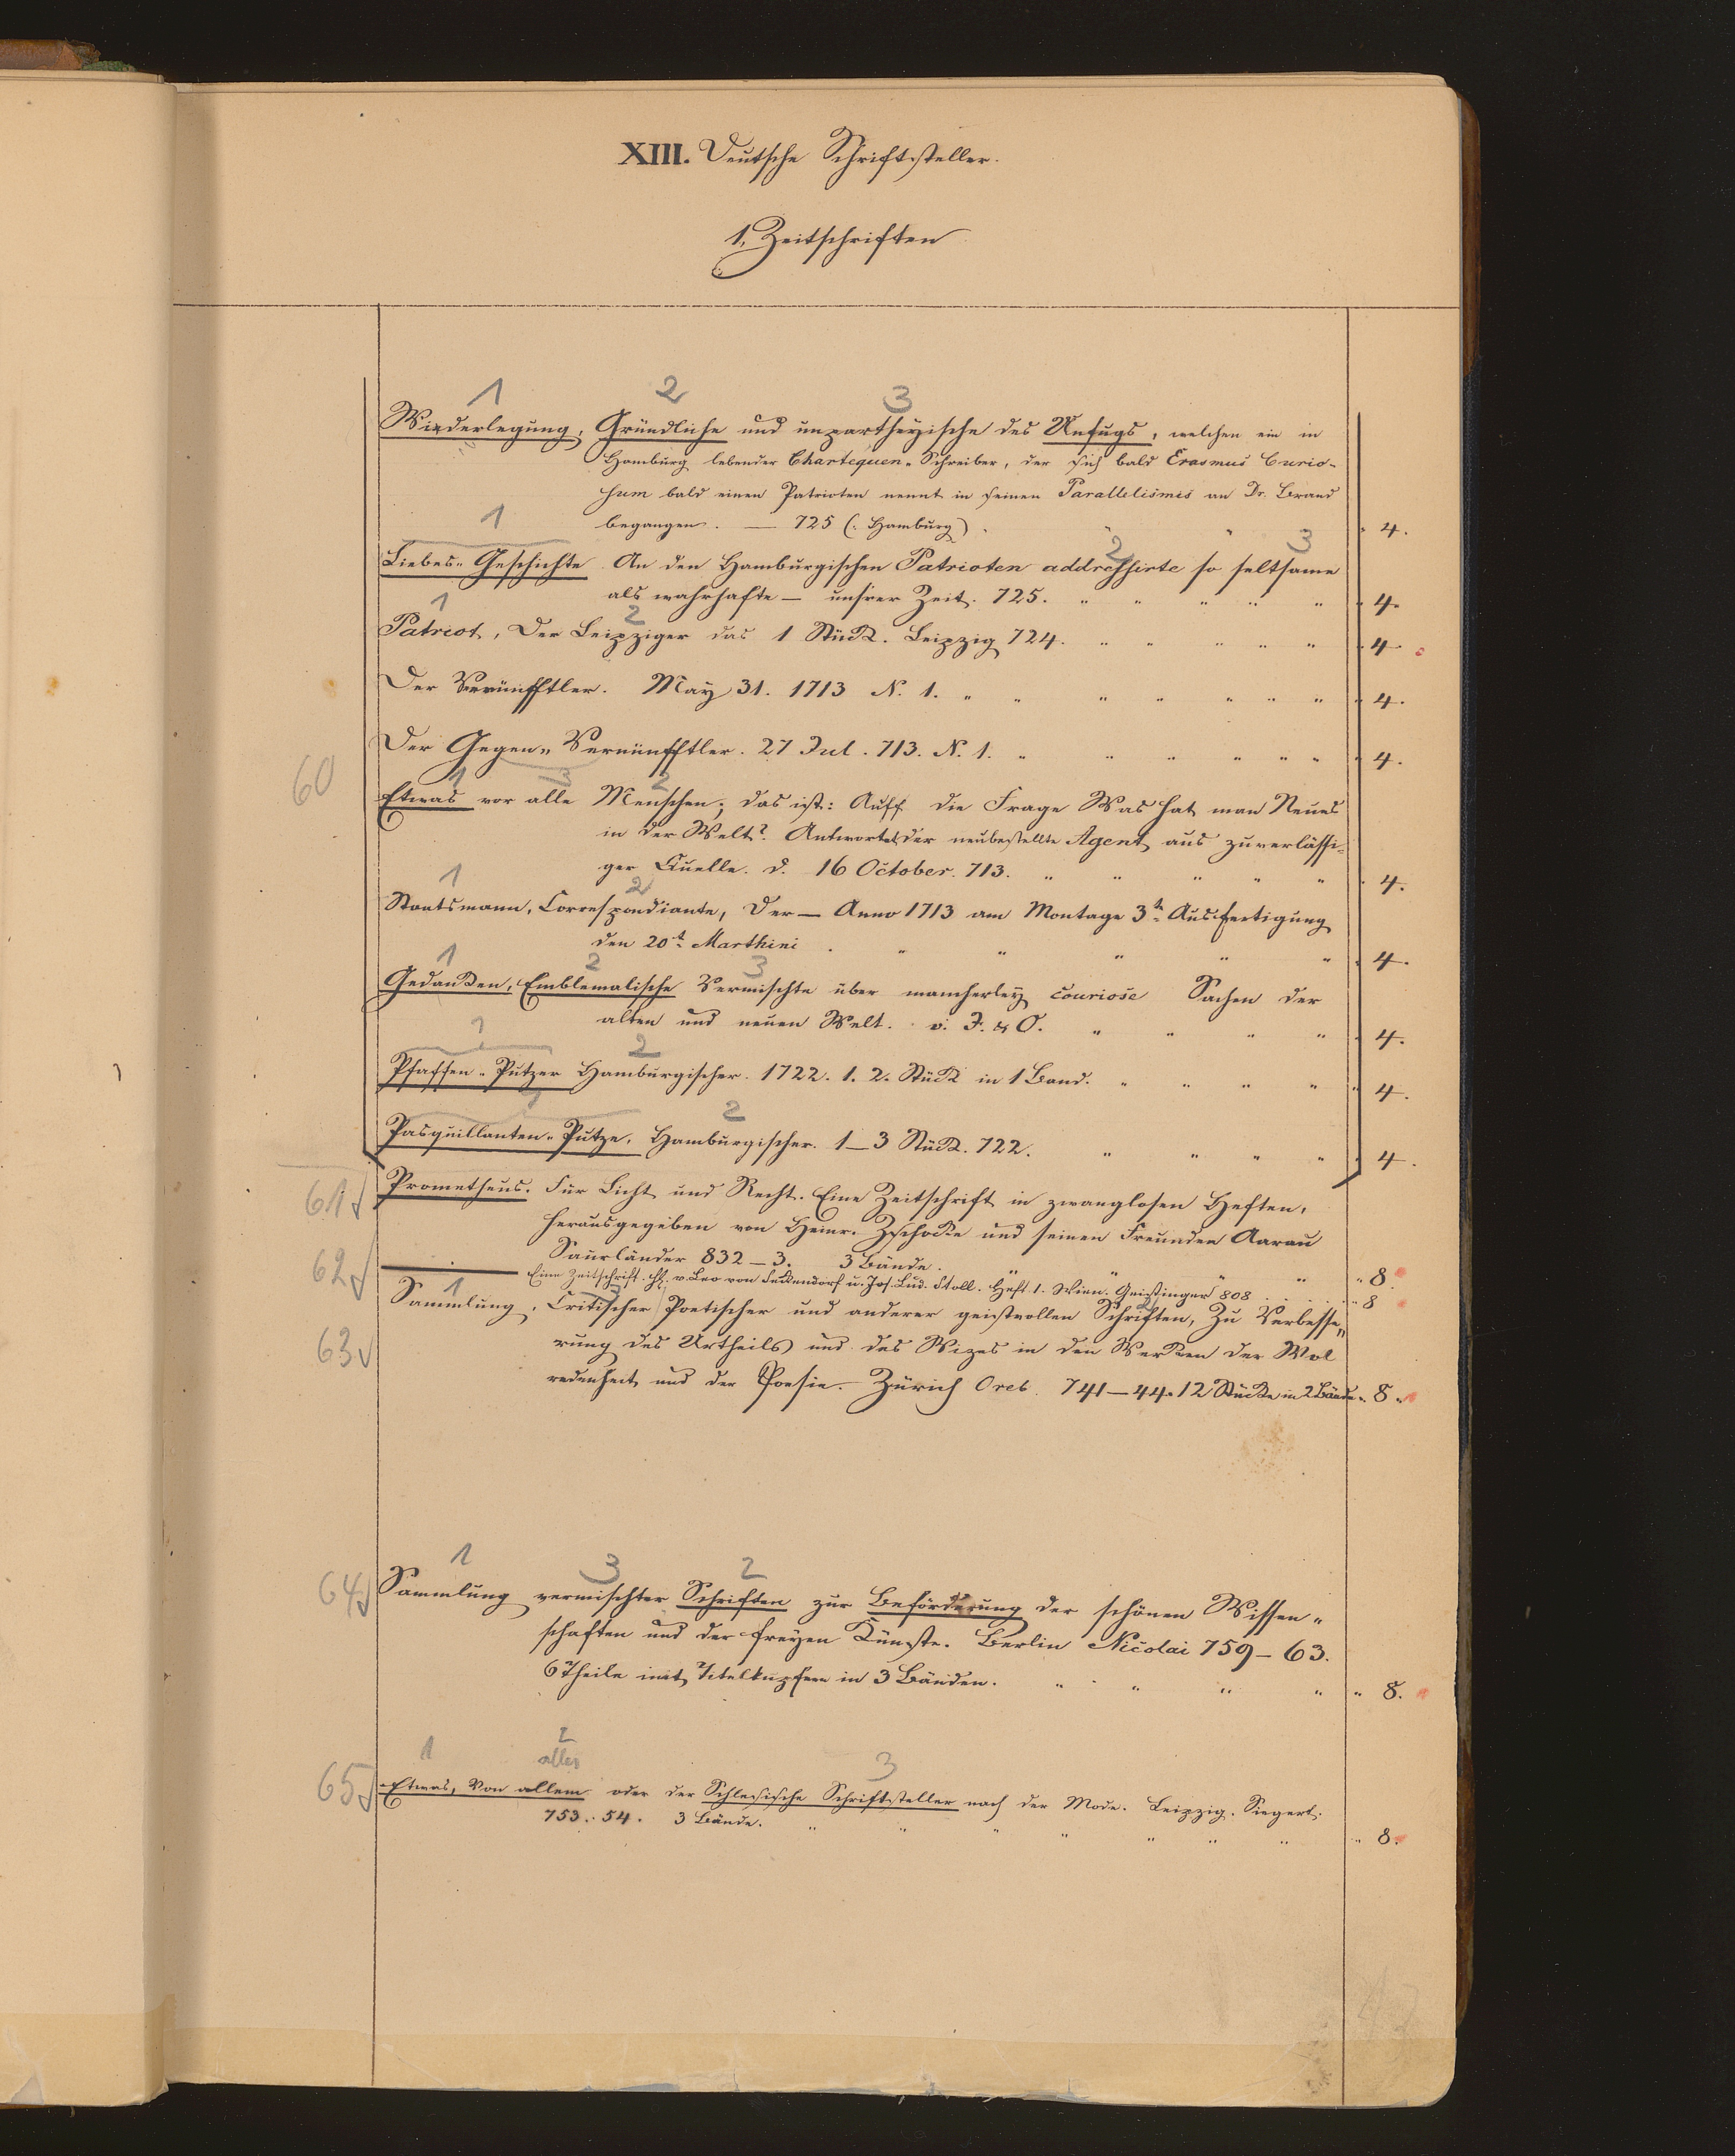 XIII. Deutsche Schriftsteller.
1. Zeitschriften
1 2 3
Wiederlegung, Gründliche und unpartheyische des Unfugs, welchen ein in
Hamburg lebender Chartequen-Schreiber, der sich bald Erasmus Curio-
sum bald einen Patrioten nennt in seinen Parallelismis an Dr. Brand
begangen. — 725 (: Hamburg) . " " 4.
1 2 3
Liebes-Geschichte An den Hamburgischen Patrioten addressirte so seltsame
als wahrhafte — unsrer Zeit. 725. " " " " " 4.
1 2
Patriot, Der Leipziger das 1 Stück. Leipzig 724. " " " " " 4
Der Vernünfftler. May 31. 1713 N. 1. " " " " " " " 4.
Der Gegen-Vernünfftler. 27 Jul. 713. N. 1. " " " " " " 4.
60
1 3 2
Etwas vor alle Menschen; das ist: Auff die Frage Was hat man Neues
in der Welt? Antwortet der neubestellte Agent aus zuverlässi-
ger Quelle. d. 16 October. 713. " " " " " 4.
1 2
Staatsmann, Correspondiante, Der — Anno 1713 am Montage 3te Ausfertigung
den 20t Marthini . " " " " " 4.
1 2 3
Gedanken, Emblematische Vermischte über mancherley couriose Sachen der
alten und neuen Welt. v. J. & O. " " " " 4.
1 2
Pfaffen-Putzer Hamburgischer. 1722. 1. 2. Stück in 1 Band. " " " " 4.
1 2
Pasquillanten-Putze, Hamburgischer. 1–3 Stück. 722. " " " " 4.
61 Prometheus. Für Licht und Recht. Eine Zeitschrift in zwanglosen Heften,
herausgegeben von Heinr. Zschocke und seinen Freunden Aarau
Saurländer 832–3. 3 Bände. " " " " " 8.
62 —— Eine Zeitschrift. Hg. v. Leo von Seckendorf u. Jos. Lud. Stoll. Heft 1. Wien. Geistinger 808 . . . . . " 8
1 3 2
63 Sammlung, Critischer Poetischer und anderer geistvollen Schriften, Zu Verbesse-
rung des Urtheils und des Wizes in den Werken der Wol
redenheit und der Poesie. Zürich Orel. 741–44. 12 Stücke in 2 Bände. 8.
1 3 2
64 Sammlung vermischter Schriften zur Beförderung der schönen Wissen-
schaften und der freyen Künste. Berlin Nicolai 759–63.
6 Theile mit Titelkupfern in 3 Bänden. " " " " " 8.
1 2 3
alles
65 Etwas, Von allem oder der Schlesische Schriftsteller nach der Mode. Leipzig. Siegert.
753. 54. 3 Bände. " " " " " " " " 8.